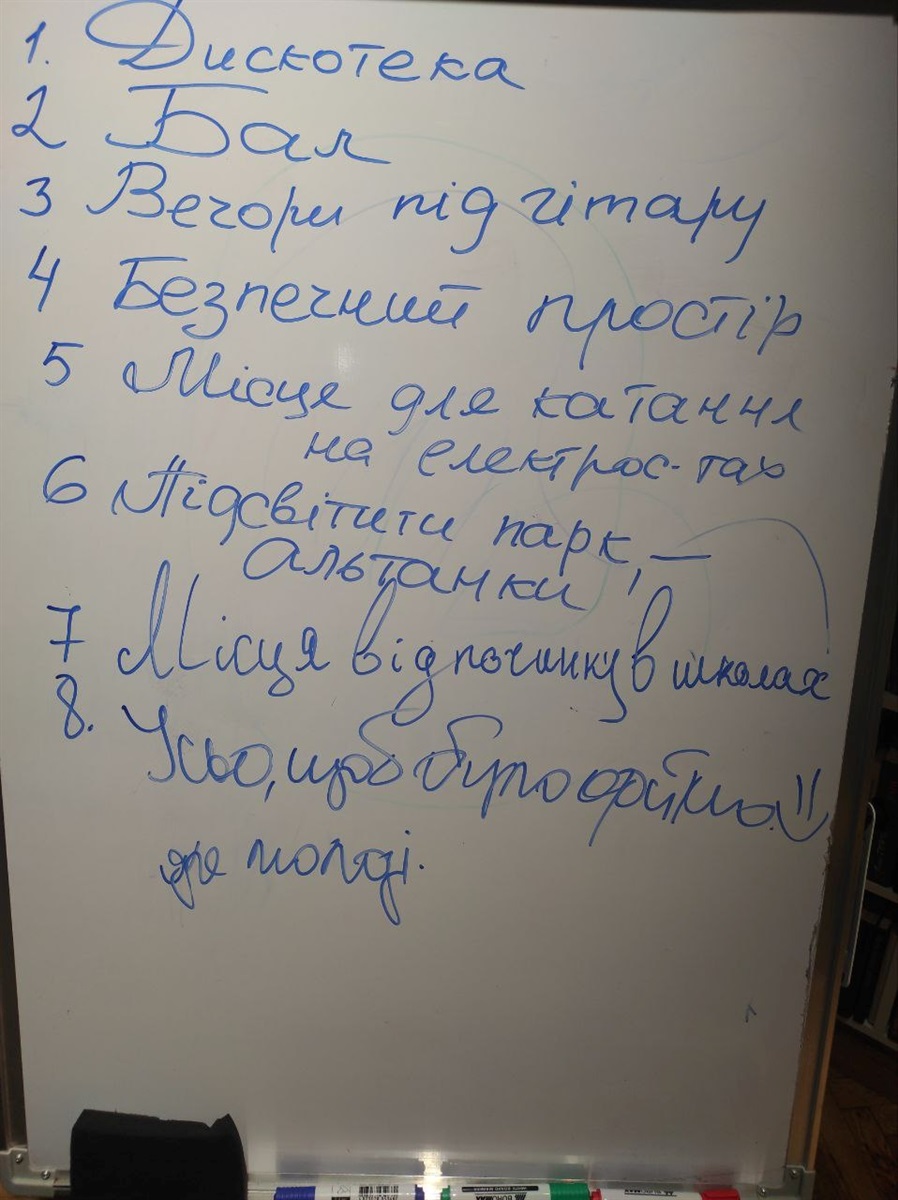 1. Дискотека
2 Бал
3 Вечори під гітару
4 Безпечний простір
5 Місце для катання
на електрос-тах
6 Підсвітити парк, —
Альтанки !
7 Місця відпочинку в школах
8. Усьо, щоб було файно
для молоді.